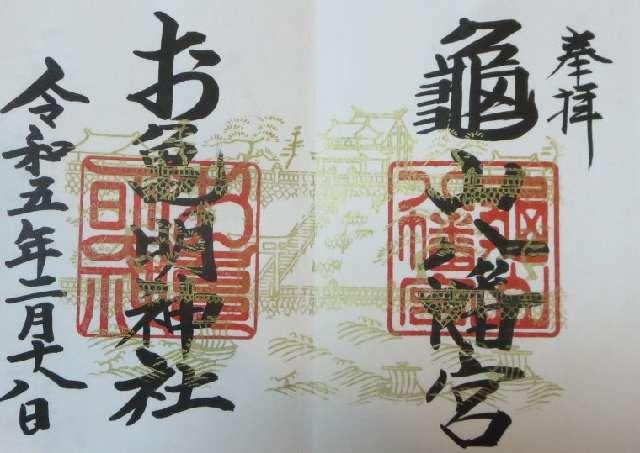 奉拝
龜山八幡宮
お亀明神社
令和五年二月十八日